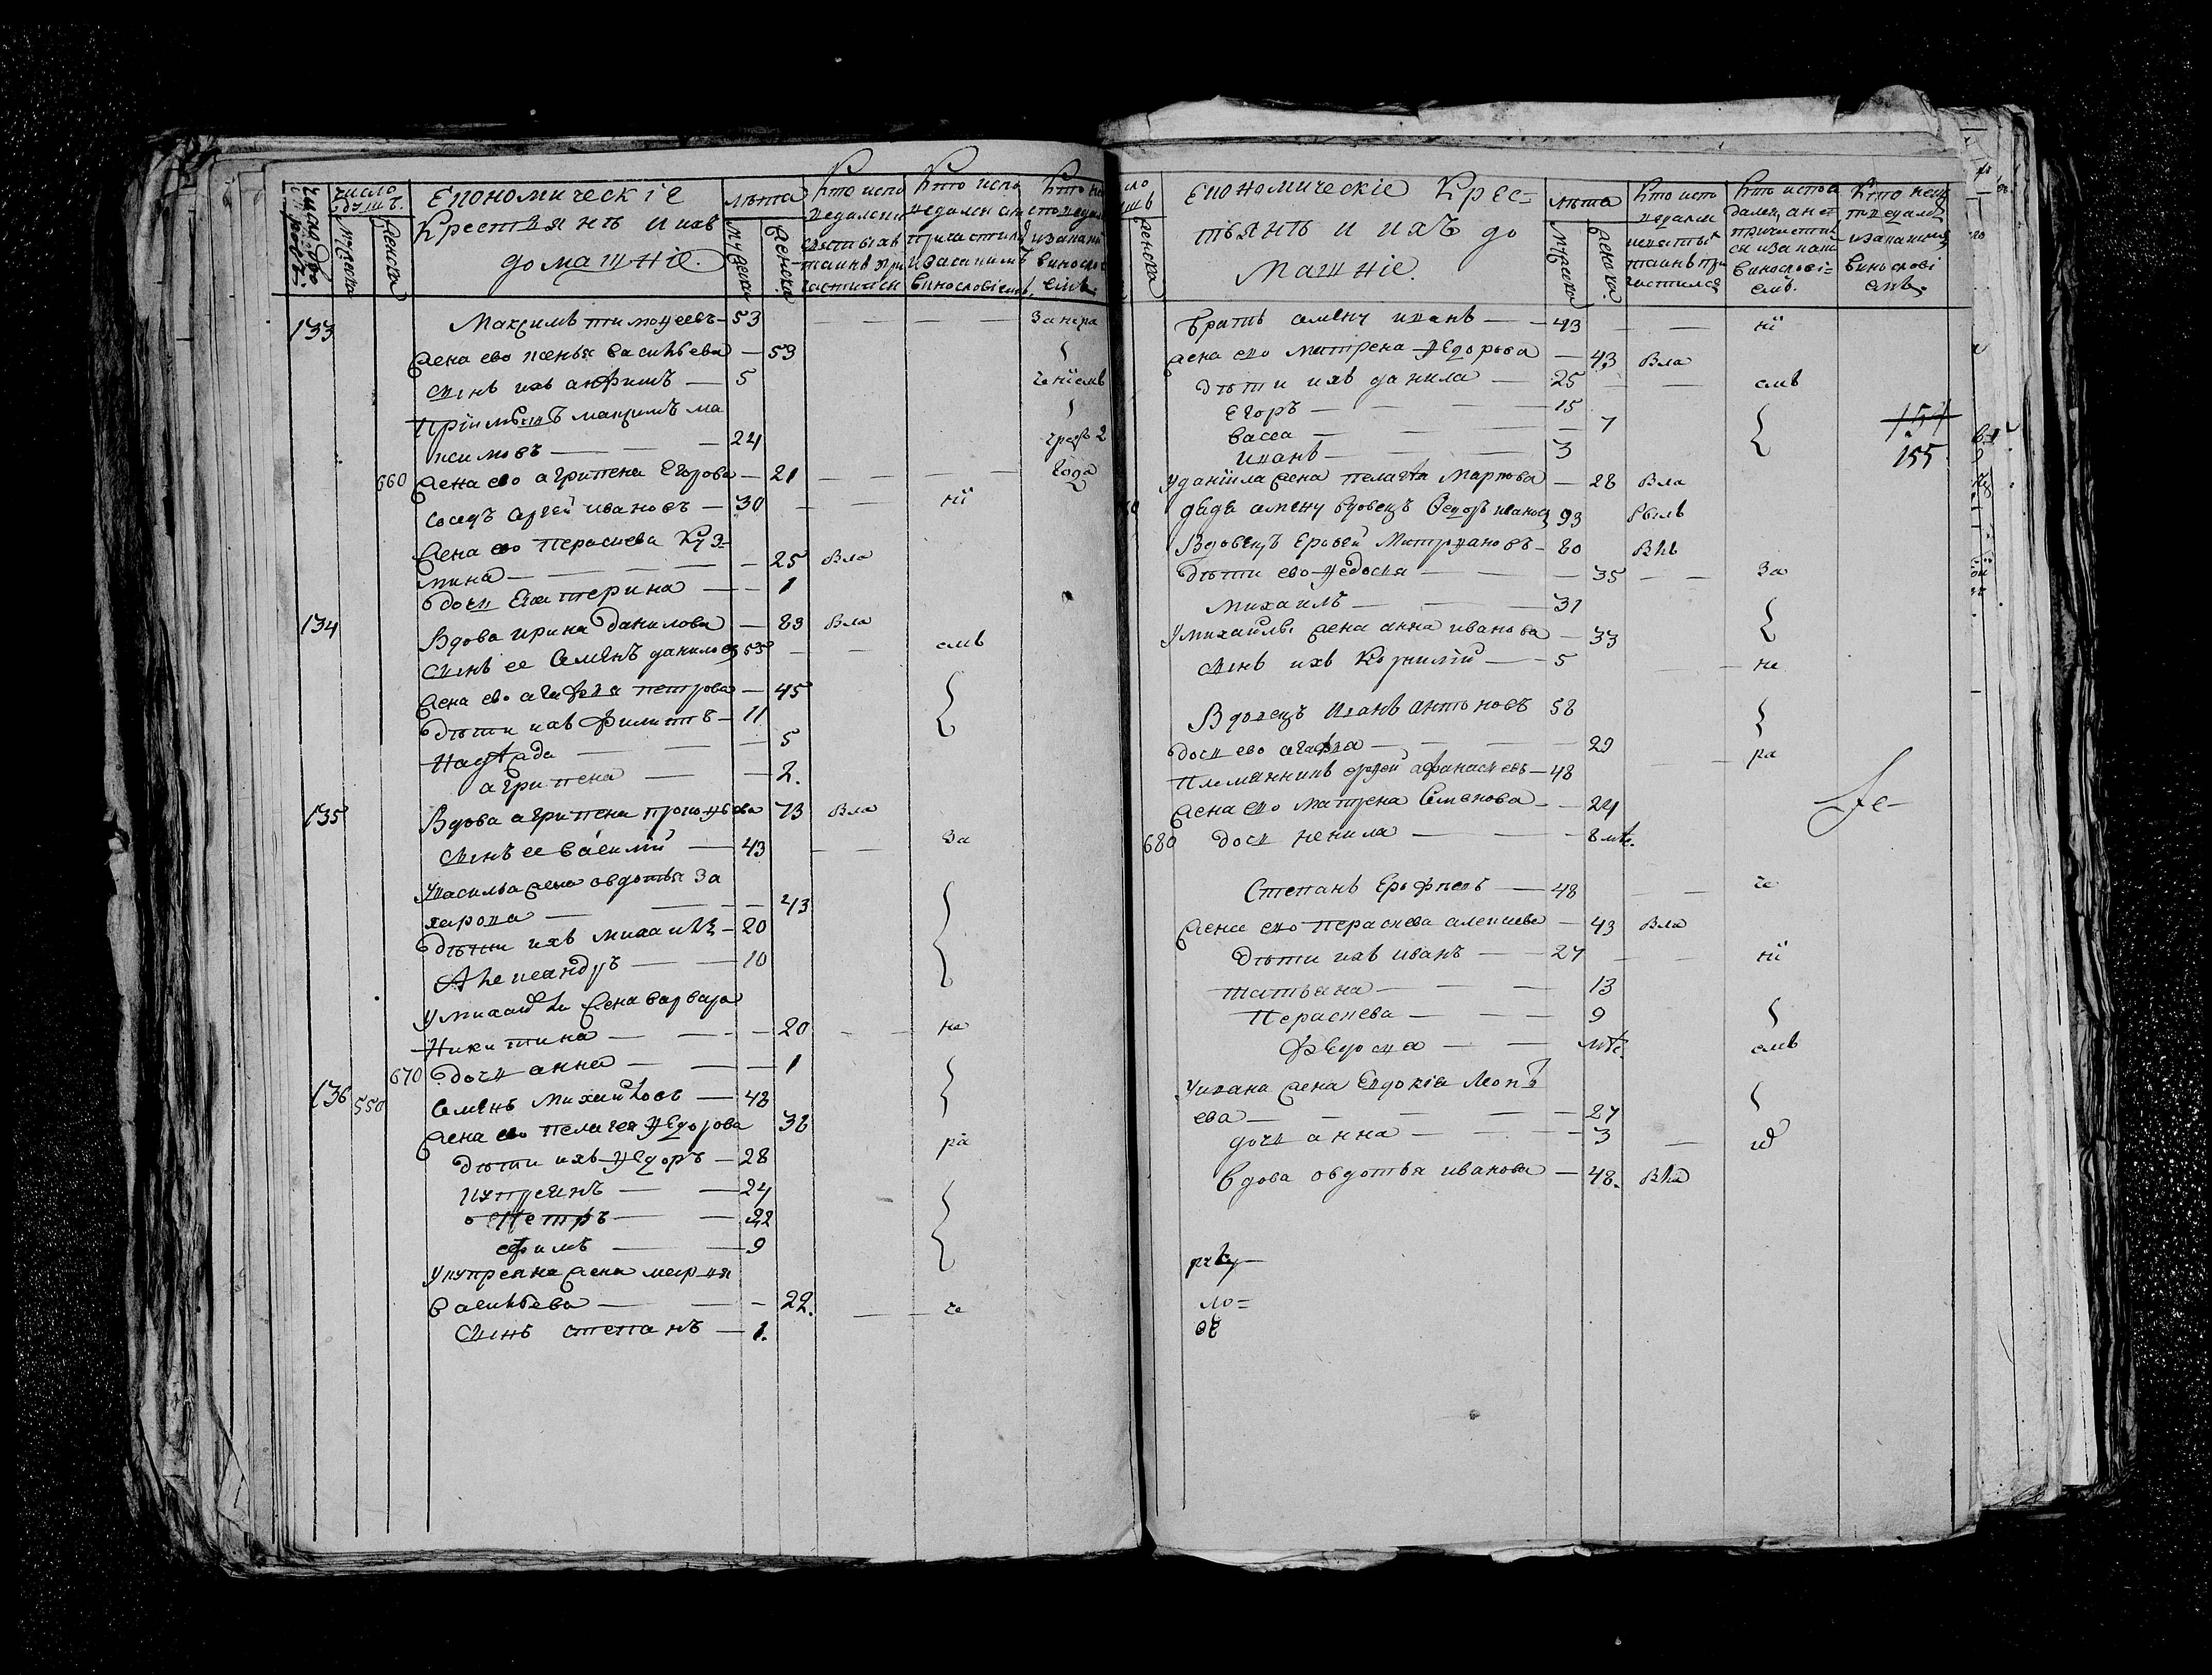 число душъ.
Экономическіе
Крестьянъ и ихъ
домашніе.
лѣта
мужеска
женска
Кто испо
ведалися
святыхъ
таинъ при
частилися
Кто испо
ведался а не
причастилсѧ
и за какимъ
винословіемъ.
виносло
емъ.
133 Максимъ тимофеевъ — 53 — — — — за нера
жена ево ксенья васильева — 53
сынъ ихъ анфимъ — 5 ченіемъ
Пріимышъ максимъ ма
ксимовъ — — — 24 2
660 жена ево агрипена Егорова — 21 — — — — года
соседъ сергей ивановъ — 30 — — ніі
жена ево Параскева Куз
мина — — — — 25 Вла
дочь Екатерина — — 1
134 Вдова ирина данилова — 83 Вла
сынъ ее Семенъ данилов 55 — — емъ
жена ево агафья петрова — 45
дѣти ихъ филиппъ — 11
надежда — — — 5
агрипена — — 2.
135 Вдова агрипена прокофьева 73 Вла
сынъ ее василій — 43 — — за
У василья жена овдотья за
харова — — — — 43
дѣти ихъ михаилъ — 20
Александръ — — 10
У михаила жена варвара
Никитина — — — — 20 — — не
670 дочь анна — — — 1
136 550 Семенъ Михайловъ — 48
жена ево пелагея Федорова 38 ра
дѣти ихъ Федоръ — 28
купреянъ — — 24
Петръ — — 22
ефимъ — — 9
У купреяна жена марья
васильева — — — 22. — — че
сынъ степанъ — 1.
женска
Экономическіе Крес=
тьянъ и ихъ до
машніе.
лѣта
мужеска
женска.
Кто испо
ведали
таинъ при
частился
винослові=
емъ.
винослові
емъ.
Братъ семену иванъ — — 43 — — ніі
жена ево матрена Федорова — 43 Вла
дѣти ихъ данила — 25 — — емъ
Егоръ — — — 15
васса — — — — 7 154
иванъ — — — 3 155
У даніила жена пелагея Маркова — 28 Вла
дедъ семену вдовецъ Федоръ иванов 93 Былъ
Вдовецъ Ерофей Митрофановъ — 80 Влъ
дѣти ево Федосья — — — 35 — — За
михаилъ — — — 31
У михаила жена анна иванова — 33
сынъ ихъ Корнилій — — 5 — не
Вдовецъ Иванъ Антоновъ 58
дочь ево агафья — — — — 29 — ра
Племянникъ сергей афанасьевъ — 48
жена ево матрена Семенова — — 24
680 дочь ненила — — — 8 мѣс.
Степанъ Ерофеевъ — 48 — — че
жена ево параскева алексеева — 43 Вла
дѣти ихъ иванъ — — 27 — — ніі
татьяна — — — 13
Параскева — — — 9
Федосья — — мѣс емъ
У ивана жена Евдокіа Леонть
ева — — — — — 27
дочь анна — — — — 3 — и
Вдова овдотья иванова — 48. Вла